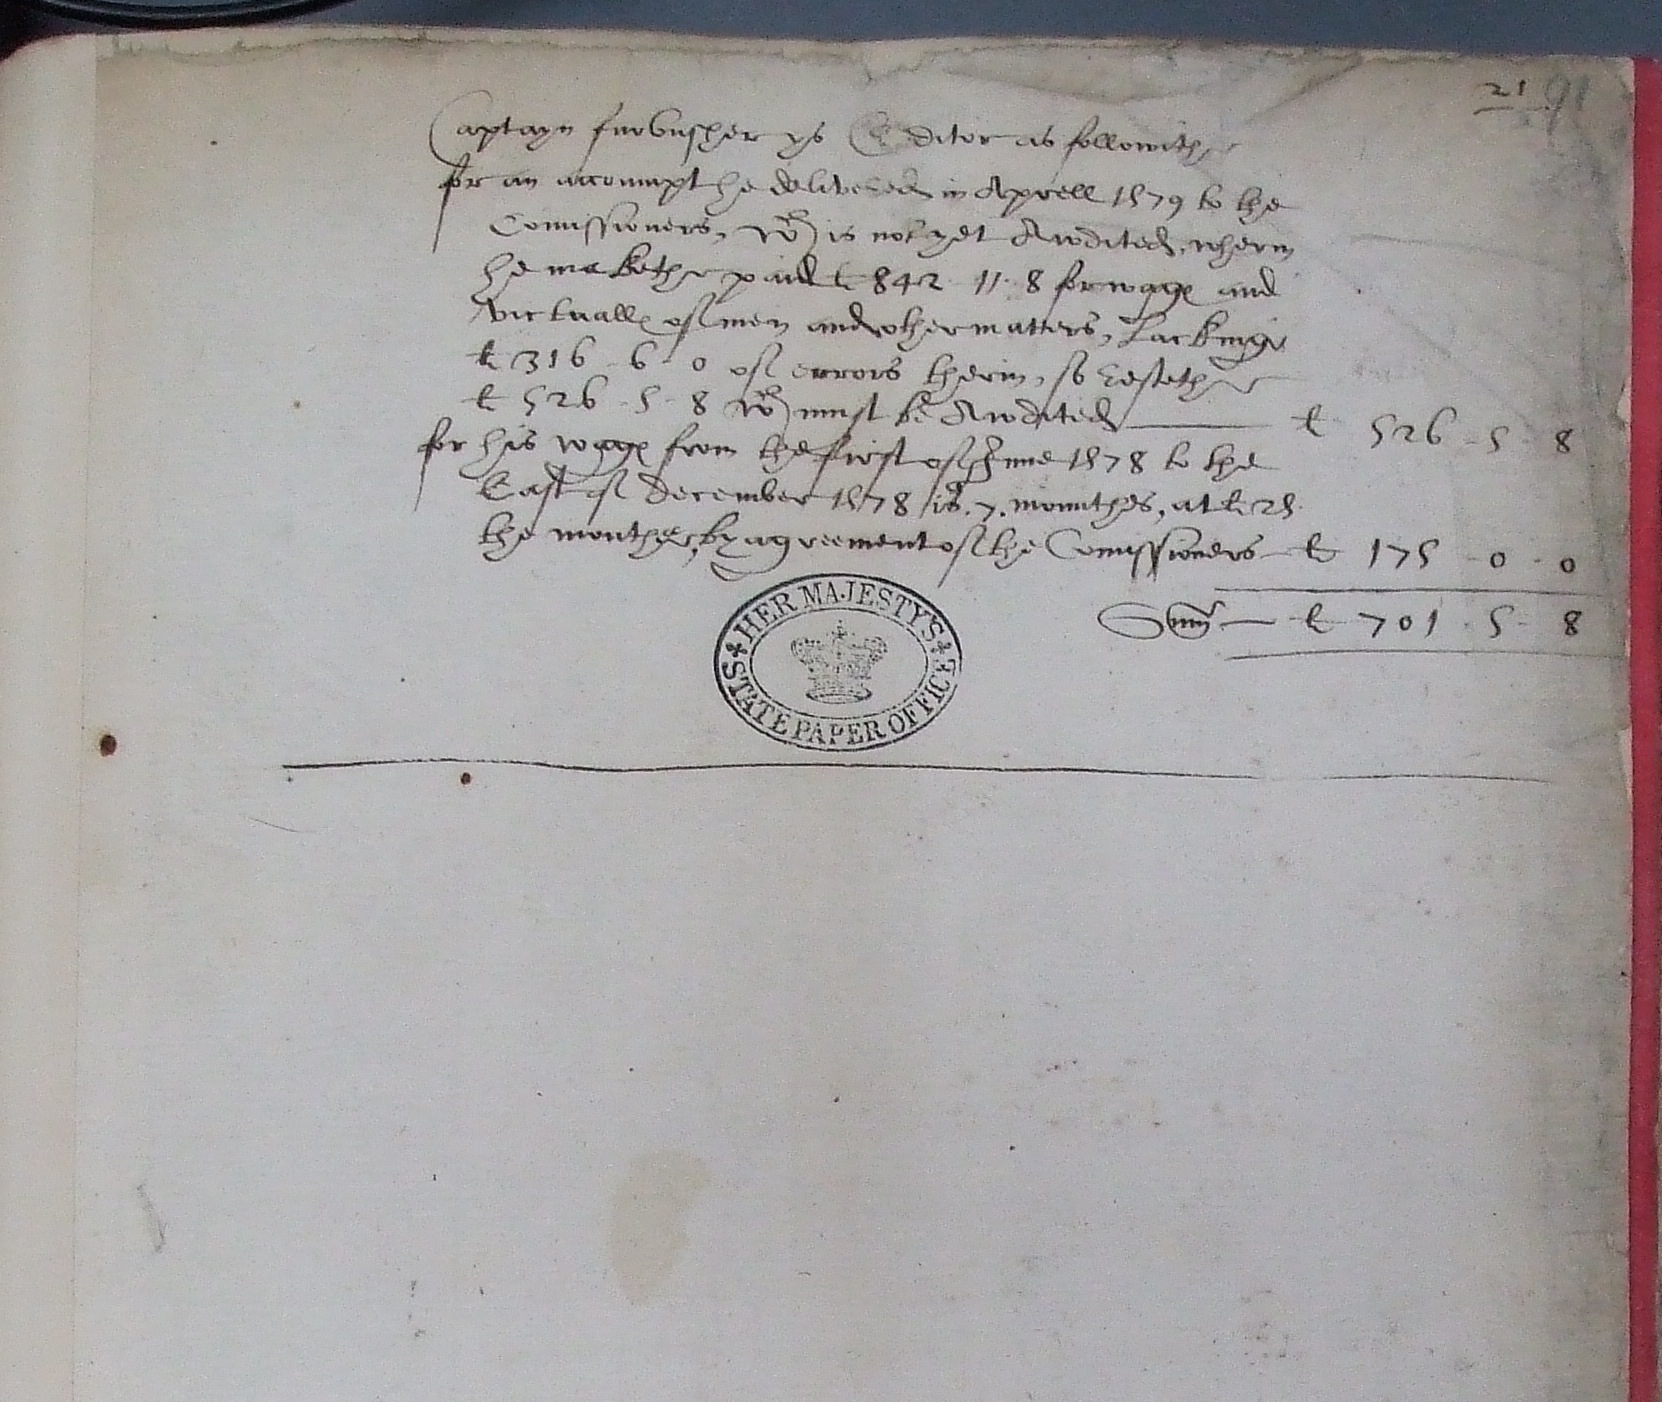 21 91
Captayn furbusher ys Creditor as followithe
for an accoumpt he delivered in Aprell 1579 to the
Comissioners, wch is not yet Awdited, wherin
he makethe paid £ 842 11 8 for wages and
victualls of men and other matters, Lackinge
£ 316 6 0 of errors therin, so Restethe
£ 526 5 8 wch must be Awdited £ 526 5 8
for his wages from the first of June 1578 to the
Last of december 1578 is .7. mounthes, at £ 25
the monthe, by agreement of the Comissioners £ 175 0 0
Summ £ 701 5 8
HER MAJESTY'S
STATE PAPER OFFICE